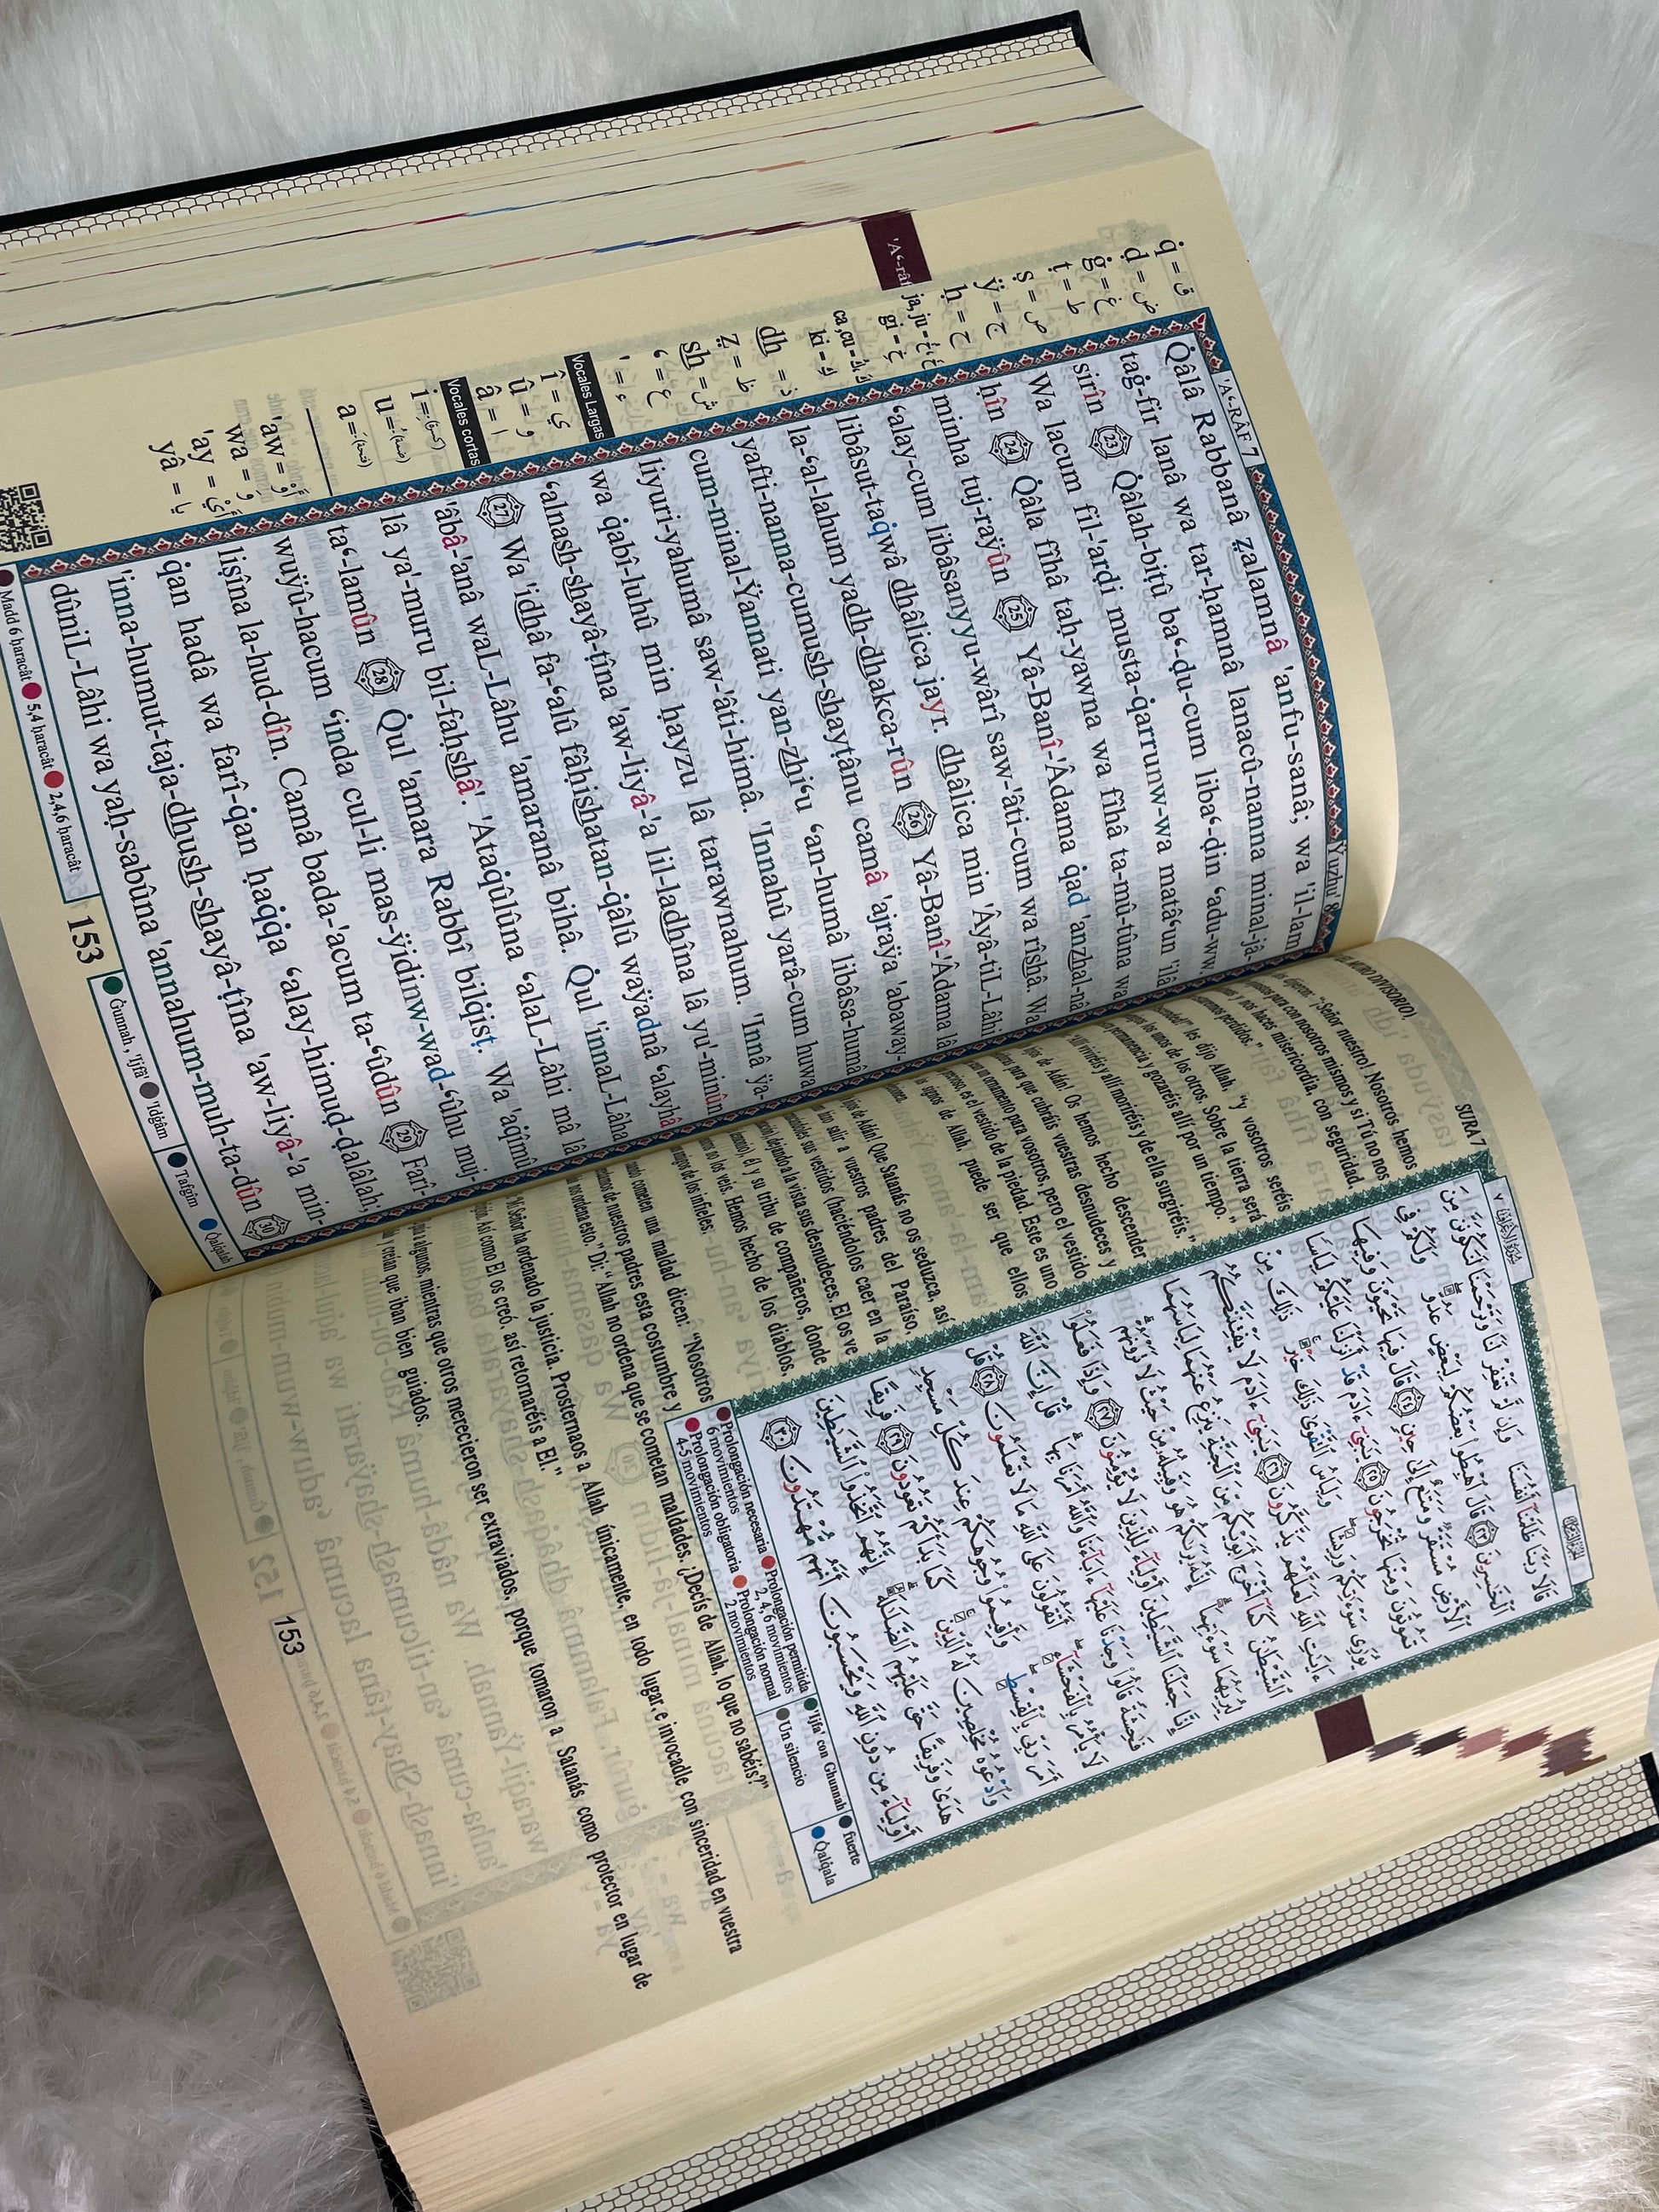 'A‘-RÂF 7
Ÿuzhu 8
Q̇âlâ Rabbanâ ẓalamnâ 'anfu-sanâ; wa 'il-lam
taġ-fir lanâ wa tar-ḥamnâ lanacû-nanna minal-jâ-
sirîn 23 Q̇âlah-biṭû ba‘-ḍu-cum liba‘-ḍin ‘adu-ww.
Wa lacum fil-'arḍi musta-q̇arrunw-wa matâ‘un 'ilâ
ḥîn 24 Q̇âla fîhâ taḥ-yawna wa fîhâ ta-mû-tûna wa
minha tuj-raÿûn 25 Yâ-Banî-'Âdama q̇ad 'anzhal-nâ
‘alay-cum libâsanyyu-wârî saw-'âti-cum wa rîshâ. Wa
libâsut-taq̇wâ dhâlica jayr. dhâlica min 'Âyâ-tiL-Lâhi
la-‘al-lahum yadh-dhakca-rûn 26 Yâ-Banî-'Âdama lâ
yafti-nanna-cumush-shayṭânu camâ 'ajraÿa 'abaway-
cum-minal-Ÿannati yan-zhi‘u ‘an-humâ libâsa-humâ
liyuri-yahumâ saw-'âti-himâ. 'Innahû yarâ-cum huwa
wa q̇abî-luhû min ḥayzu lâ tarawnahum. 'Innâ ÿa-
‘alnash-shayâ-ṭîna 'aw-liyâ-'a lil-ladhîna lâ yu'-minûn
27 Wa 'idhâ fa-‘alû fâḥishatan-q̇âlû waÿadnâ ‘alayhâ
'âbâ-'anâ waL-Lâhu 'amaranâ bihâ. Q̇ul 'innaL-Lâha
lâ ya'-muru bil-faḥshâ'. 'Ataq̇ûlûna ‘alaL-Lâhi mâ lâ
ta‘-lamûn 28 Q̇ul 'amara Rabbî bilq̇isṭ. Wa 'aq̇îmû
wuÿû-hacum ‘inda cul-li mas-ÿidinw-wad-‘ûhu muj-
liṣîna la-hud-dîn. Camâ bada-'acum ta-‘ûdûn 29 Farî-
q̇an hadâ wa farî-q̇an ḥaq̇q̇a ‘alay-himuḍ-ḍalâlah;
'inna-humut-taja-dhush-shayâ-ṭîna 'aw-liyâ-'a min-
dûniL-Lâhi wa yaḥ-sabûna 'annahum-muh-ta-dûn 30
Madd 6 ḥaracât 5,4 ḥaracât 2,4,6 ḥaracât
Ġunnah , 'Ijfâ' 'Idġâm Tafjîm Q̇alq̇alah
153
'A‘-râf
q̇ = ق
ḍ = ض
ġ = غ
ṭ = ط
ṣ = ص
ÿ = ج
ḥ = ح
dh = ذ
ẓ = ظ
sh = ش
‘ = ع
' = ء
Vocales Largas
î = ي
û = و
â = ا
Vocales cortas
'aw = أَوْ
wa = وَ
'ay = أَيْ
yâ = يا
SURA 7
"Señor nuestro! Nosotros hemos
para con nosotros mismos y si Tú no nos
y nos haces misericordia, con seguridad,
perdidos."
les dijo Allah, "y vosotros seréis
los unos de los otros. Sobre la tierra será
permanencia y gozaréis allí por un tiempo."
"Allí viviréis y allí moriréis y de ella surgiréis."
de Adán! Os hemos hecho descender
para que cubráis vuestras desnudeces y
un ornamento para vosotros, pero el vestido
es el vestido de la piedad. Este es uno
signos de Allah, puede ser que ellos
de Adán! Que Satanás no os seduzca, así
hizo salir a vuestros padres del Paraíso,
sus vestidos (haciéndolos caer en la
dejando a la vista sus desnudeces. El os ve
él y su tribu de compañeros, donde
no los veis. Hemos hecho de los diablos,
amigos de los infieles.
cometen una maldad dicen: "Nosotros
de nuestros padres esta costumbre y
nos ordena esto." Di: " Allah no ordena que se cometan maldades. ¿Decís de Allah, lo que no sabéis?"
"Mi Señor ha ordenado la justicia. Prosternaos a Allah únicamente, en todo lugar, e invocadle, con sinceridad en vuestra
Así como El os creó, así retornaréis a El."
algunos, mientras que otros merecieron ser extraviados, porque tomaron a Satanás como protector en lugar de
creían que iban bien guiados.
قَالَا رَبَّنَا ظَلَمْنَا أَنفُسَنَا وَإِن لَّمْ تَغْفِرْ لَنَا وَتَرْحَمْنَا لَنَكُونَنَّ مِنَ
الْخَاسِرِينَ ٢٣ قَالَ اهْبِطُوا بَعْضُكُمْ لِبَعْضٍ عَدُوٌّ وَلَكُمْ فِي
الْأَرْضِ مُسْتَقَرٌّ وَمَتَاعٌ إِلَىٰ حِينٍ ٢٤ قَالَ فِيهَا تَحْيَوْنَ وَفِيهَا
تَمُوتُونَ وَمِنْهَا تُخْرَجُونَ ٢٥ يَا بَنِي آدَمَ قَدْ أَنزَلْنَا عَلَيْكُمْ لِبَاسًا
يُوَارِي سَوْآتِكُمْ وَرِيشًا وَلِبَاسُ التَّقْوَىٰ ذَٰلِكَ خَيْرٌ ذَٰلِكَ مِنْ
آيَاتِ اللَّهِ لَعَلَّهُمْ يَذَّكَّرُونَ ٢٦ يَا بَنِي آدَمَ لَا يَفْتِنَنَّكُمُ
الشَّيْطَانُ كَمَا أَخْرَجَ أَبَوَيْكُم مِّنَ الْجَنَّةِ يَنزِعُ عَنْهُمَا لِبَاسَهُمَا
لِيُرِيَهُمَا سَوْآتِهِمَا إِنَّهُ يَرَاكُمْ هُوَ وَقَبِيلُهُ مِنْ حَيْثُ لَا تَرَوْنَهُمْ
إِنَّا جَعَلْنَا الشَّيَاطِينَ أَوْلِيَاءَ لِلَّذِينَ لَا يُؤْمِنُونَ ٢٧ وَإِذَا فَعَلُوا
فَاحِشَةً قَالُوا وَجَدْنَا عَلَيْهَا آبَاءَنَا وَاللَّهُ أَمَرَنَا بِهَا قُلْ إِنَّ اللَّهَ
لَا يَأْمُرُ بِالْفَحْشَاءِ أَتَقُولُونَ عَلَى اللَّهِ مَا لَا تَعْلَمُونَ ٢٨ قُلْ
أَمَرَ رَبِّي بِالْقِسْطِ وَأَقِيمُوا وُجُوهَكُمْ عِندَ كُلِّ مَسْجِدٍ
وَادْعُوهُ مُخْلِصِينَ لَهُ الدِّينَ كَمَا بَدَأَكُمْ تَعُودُونَ ٢٩ فَرِيقًا
هَدَىٰ وَفَرِيقًا حَقَّ عَلَيْهِمُ الضَّلَالَةُ إِنَّهُمُ اتَّخَذُوا الشَّيَاطِينَ
أَوْلِيَاءَ مِن دُونِ اللَّهِ وَيَحْسَبُونَ أَنَّهُم مُّهْتَدُونَ ٣٠
Prolongación necesaria
6 movimientos
Prolongación obligatoria
4-5 movimientos
Prolongación permitida
2, 4, 6 movimientos
Prolongación normal
2 movimientos
'Ijfa' con Ghunnah
Un silencio
fuerte
Q̇alq̇ala
153